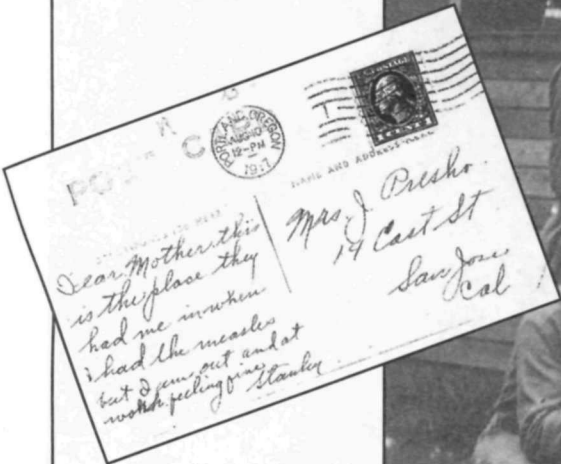 POST C
PORTLAND, OREGON
AUG 10
12-PM
1917
U.S. POSTAGE
1 CENT 1
NAME AND ADDRESS HERE
Dear Mother this
is the place they
had me in when
I had the measles
but I am out and at
work feeling fine
Stanley
Mrs. J. Presho.
19 East St
San Jose
Cal